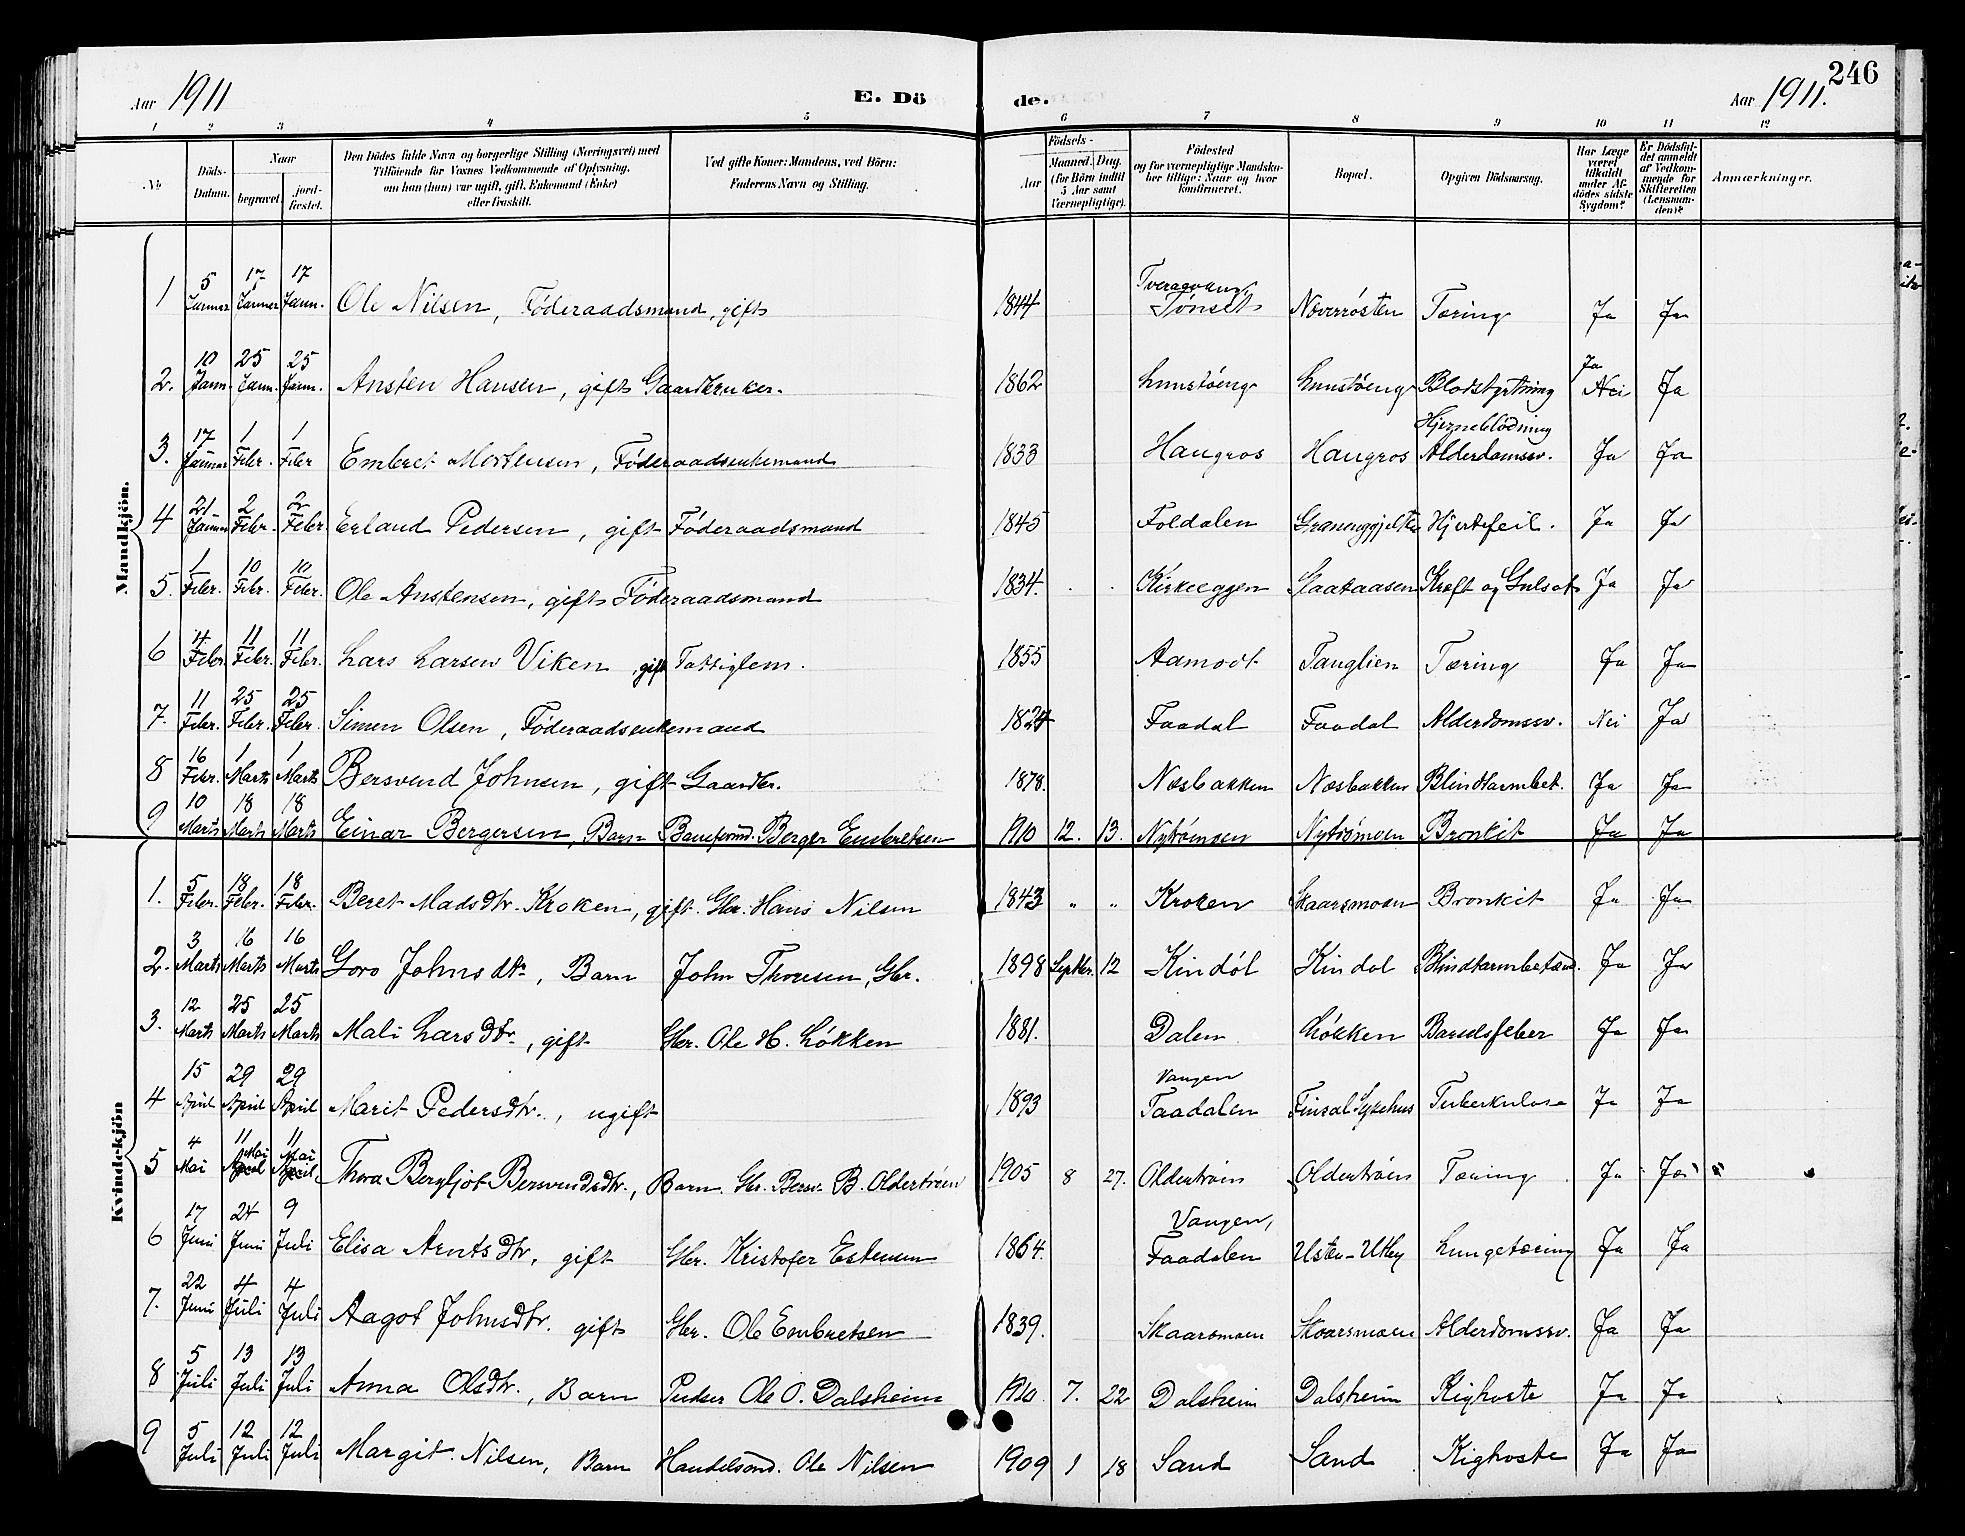 246
Aar 1911 E. Dö de. Aar 1911.
1 2 3 4 5 6 7 8 9 10 11 12
No. Döds-Datum. Naar begravet. jordfæstet. Den Dödes fulde Navn og borgerlige Stilling (Næringsvei) med Tilföiende for Voxnes Vedkommende af Oplysning, om han (hun) var ugift, gift, Enkemand (Enke) eller fraskilt. Ved gifte Koner: Mandens, ved Börn: Faderens Navn og Stilling. Aar Födsels- Maaned. Dag. (for Börn indtil 5 Aar samt Værnepligtige). Födested og for værnepligtige Mandskaber tillige: Naar og hvor konfirmeret. Bopæl. Opgiven Dödsaarsag. Har Læge været tilkaldt under Afdödes sidste Sygdom? Er Dödsfaldet anmeldt af Vedkommende for Skifteretten (Lensmanden)? Anmærkninger.
Mandkjön.
1 5 Januar 17 Januar 17 Jann. Ole Nilsen, Föderaadsmand, gift 1844 Tönset Næverrösten Tæring Ja Ja
2. 10 Jann. 25 Jann. 25 Jann. Ansten Hansen, gift Gaardbruker. 1862 Lunstöeng Lunstöeng Blodstyrtning Ja Nei Ja
3. 17 Januar 1 Febr. 1 Febr Embret Mortensen, Föderaadsenkemand 1833 Haugros Haugros Hjerneblödning Alderdomssv. Ja Ja
4 21 Januar 2 Febr. 2 Febr. Erland Pedersen, gift Föderaadsmand 1845 Foldalen Hjertefeil. Ja Ja
5. 1 Febr. 10 Febr. 10 Febr. Ole Anstensen, gift Föderaadsmand 1834. Kirkeeggen Slaataasen Kræft og Gulsot Ja Ja
6 4 Febr 11 Febr. 11 Febr. Lars Larsen Viken, gift Fattiglem. 1855 Aamodt Fanglien Tæring Ja Ja
7. 11 Febr. 25 Febr. 25 Febr. Simen Olsen, Föderaadsenkemand 1824 Faadal Faadal Alderdomssv. Nei Ja
8 16 Febr. 1 Marts 1 Marts Bersvend Johnsen, gift Gaardbr. 1878. Næsbakken Næsbakken Blindtarmbet. Ja Ja
9 10 Marts 18 Marts 18 Marts Einar Bergersen, Barn Berger Embretsen 1910 12. 13. Nytrömoen Nytrömoen Bronkit Ja Ja
Kvindekjön
1. 5 Febr. 18 Febr. 18 Febr. Beret Madsdtr. Kroken, gift. Gbr. Hans Nilsen 1843 " " Kroken Skaarsmoen Bronkit Ja Ja
2. 3 Marts 16 Marts 16 Marts Goro Johnsdtr, Barn John Thoresen, Gbr. 1898 Septbr. 12 Kindöl Kindöl Blindtarmbetænd. Ja Ja
3. 12 Marts 25 Marts 25 Marts Mali Larsdtr., gift Gbr. Ole H. Lökken 1881. Dalen Lökken Barselsfeber Ja Ja
4 15 April 29 April 29 April Marit Pedersdtr., ugift 1893 Vangen Faadalen Finsal Sykehus Tuberkulose Ja Ja
5 4 Mai 11 Mai April 11 Mai April Thora Bergljot Bersvendsdtr., Barn. Gbr. Bersv. B. Oldertröen 1905 8 27. Oldertröen Oldertröen Tæring Ja Ja
6 17 Juni 24 Juni 9 Juli Elisa Arntsdtr, gift Gbr. Kristofer Estensen 1864. Vangen, Faadalen Usten-Utby Lungetæring Ja Ja
7. 22 Juni 4 Juli 4 Juli Aagot Johnsdtr. gift Gbr. Ole Embretsen 1839. Skaarsmoen Skaarsmoen Alderdomssv. Ja Ja
8 5 Juli 13 Juli 13 Juli Anna Olsdtr., Barn Pudser Ole O. Dalsheim 1910. 7. 22 Dalsheim Dalsheim Kighoste Ja Ja
9 5 Juli 12 Juli 12 Juli Margit Nilsen, Barn Handelsmd. Ole Nilsen 1909 1 18 Sand Sand Kighoste Ja Ja